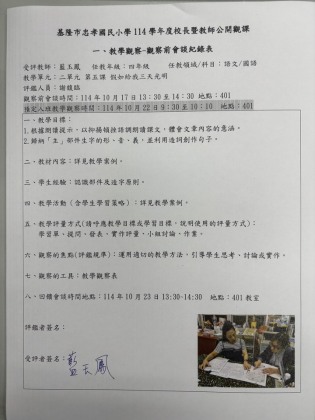 基隆市忠孝國民小學 114 學年度校長暨教師公開觀課
一、教學觀察-觀察前會談紀錄表
受評教師：藍玉鳳 任教年級：四年級 任教領域/科目：語文/國語
教學單元：二單元 第五課 假如給我三天光明
評鑑人員：謝馥臨
觀察前會談時間：114 年 10 月 17 日 13:30 至 14:30 地點：401
預定入班教學觀察時間：114 年 10 月 22 日 9:30 至 10:10 地點：401
一、教學目標：
1.根據朗讀提示，以抑揚頓挫語調朗讀課文，體會文章內容的意涵。
2.歸納「主」部件生字的形、音、義，並利用造詞創作句子。
二、教材內容：詳見教學案例。
三、學生經驗：認識部件及造字原則。
四、教學活動（含學生學習策略）：詳見教學案例。
五、教學評量方式(請呼應教學目標或學習目標，說明使用的評量方式)：
學習單、提問、發表、實作評量、小組討論、作業。
六、觀察的焦點(評鑑規準)：運用適切的教學方法，引導學生思考、討論或實作。
七、觀察的工具：教學觀察表
八、回饋會談時間地點：114 年 10 月 23 日 13:30-14:30 地點：401 教室
評鑑者簽名：
受評者簽名：藍玉鳳